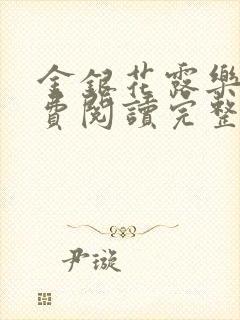 金銀花露樂
費閱讀完整
尹璇